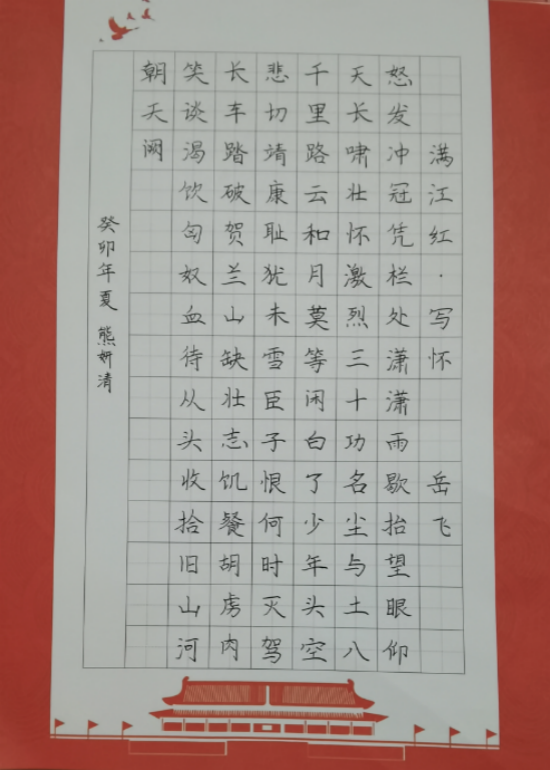 满江红·写怀 岳飞
怒发冲冠凭栏处潇潇雨歇抬望眼仰
天长啸壮怀激烈三十功名尘与土八
千里路云和月莫等闲白了少年头空
悲切靖康耻犹未雪臣子恨何时灭驾
长车踏破贺兰山缺壮志饥餐胡虏肉
笑谈渴饮匈奴血待从头收拾旧山河
朝天阙
癸卯年夏 熊妍清